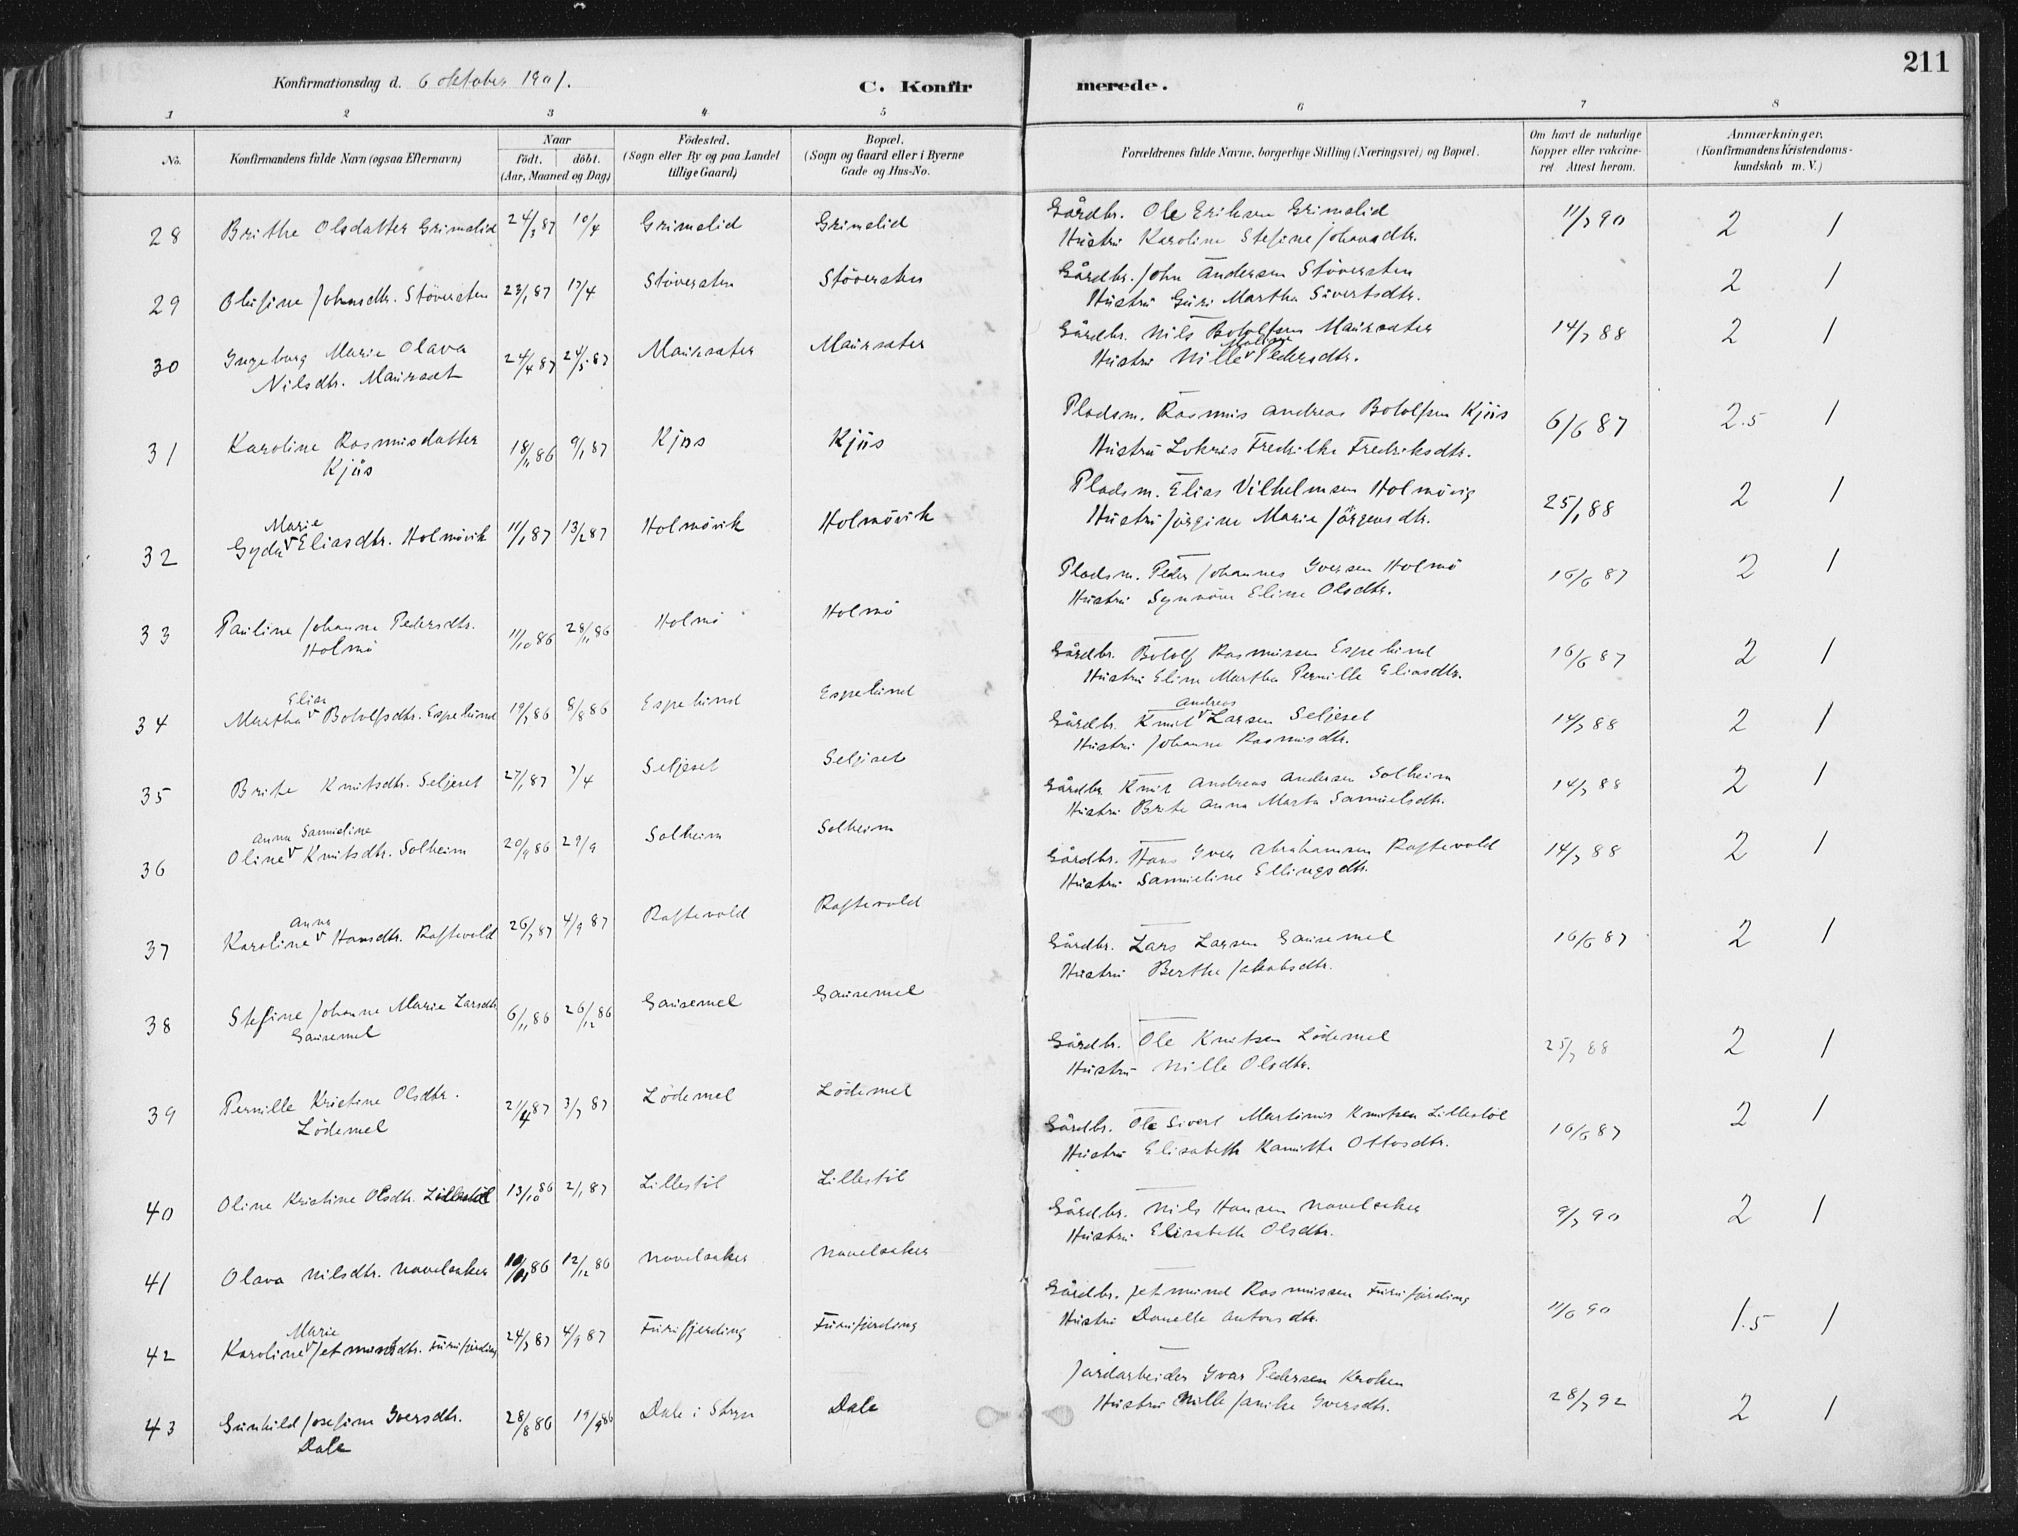 211
Konfirmationsdag d. 6 oktober 1901.
C. Konfirmerede.
1 2 3 4 5 6 7 8
No.
Konfirmandens fulde Navn (ogsaa Efternavn)
Naar
födt. döbt.
(Aar, Maaned og Dag)
Födested.
(Sogn eller By og paa Landet
tillige Gaard)
Bopæl.
(Sogn og Gaard eller i Byerne
Gade og Hus-No.
Forældrenes fulde Navne, borgerlige Stilling (Næringsvei) og Bopæl.
Om havt de naturlige
Kopper eller vakcine-
ret Attest herom.
Anmærkninger.
(Konfirmandens Kristendoms-
kundskab m. V.)
28 Brithe Olsdatter Grimelid 24/3 87 10/4 Grimelid Grimelid Gårdbr. Ole Eriksen Grimelid 11/7 90 2 1
Hustru Karoline Stefine Johansdtr.
29 Olufine Johnsdtr. Stöversten 23/1 87 17/4 Stöversten Stöversten Gårdbr. John Andersen Stöversten 2 1
Hustru Guri Martha Sivertsdtr.
30 Ingeborg Marie Olava 24/4 87 24/5 87 Maursæter Maursæter Gårdbr. Nils Botolfsen Maursæter 14/7 88 2 1
Nilsdtr. Maursæt Hustru Nille Pedersdtr.
31 Karoline Rasmusdatter 18/11 86 9/1 87 Kjøs Kjøs Pladsm. Rasmus Andreas Botolfsen Kjøs 6/6 87 2.5 1
Kjøs Hustru Fredrikke Fredriksdtr.
Marie
32 Gyda Eliasdtr. Holmövik 11/1 87 13/2 87 Holmövik Holmövik Pladsm. Elias Vilhelmsen Holmövig 25/1 88 2 1
Hustru Jörgine Marie Jörgensdtr.
33 Pauline Johanne Pedersdtr. 11/10 86 28/11 86 Holmö Holmö Pladsm. Peder Johannes Iversen Holmö 16/6 87 2 1
Holmö Hustru Synnöve Eline Olsdtr.
Elise
34 Martha Botolfsdtr. Espelund 19/7 86 8/8 86 Espelund Espelund Gårdbr. Botolf Rasmussen Espelund 16/6 87 2 1
Hustru Eline Martha Pernille Eliasdtr.
Andreas
35 Brite Knutsdtr. Seljeset 27/1 87 7/4 Seljeset Seljeset Gårdbr. Knut Larsen Seljeset 14/7 88 2 1
Hustru Johanne Rasmusdtr.
Anna Samueline
36 Oline Knutsdtr. Solheim 20/9 86 29/9 Solheim Solheim Gårdbr. Knut Andreas Andersen Solheim 14/7 88 2 1
Hustru Brite Anna Marta Samuelsdtr.
Anna
37 Karoline Hansdtr. Raftevold 26/7 87 4/9 87 Raftevold Raftevold Gårdbr. Hans Iver Abrahamsen Raftevold 14/7 88 2 1
Hustru Samueline Ellingsdtr.
38 Stefine Johanne Marie Larsdtr. 6/11 86 26/12 86 Gausemel Gausemel Gårdbr. Lars Larsen Gausemel 16/6 87 2 1
Gausemel Hustru Berthe Jakobsdtr.
39 Pernille Kristine Olsdtr. 21/4 87 3/7 87 Lödemel Lödemel Gårdbr. Ole Knutsen Lödemel 25/7 88 2 1
Lödemel Hustru Nille Olsdtr.
40 Oline Kristine Olsdtr. Lillestöl 13/10 86 2/1 87 Lillestöl Lillestöl Gårdbr. Ole Sivert Martinus Knutsen Lillestöl 16/6 87 2 1
Hustru Elisabeth Kamitte Ottosdtr.
41 Olava Nilsdtr. Navelsaker 10/11 86 12/12 86 Navelsaker Navelsaker Gårdbr. Nils Hansen Navelsaker 9/7 90 2 1
Hustru Elisabeth Olsdtr.
Marie
42 Karoline Jetmundsdtr. Furufjerding 24/7 87 4/9 87 Furufjerding Furufjerding Gårdbr. Jetmund Rasmussen Furufjerding 11/6 90 1.5 1
Hustru Danelle Antonsdtr.
43 Gunhild Josefine Iversdtr. 28/8 86 19/9 86 Dale i Stryn Dale Jordarbeider Ivar Pedersen Kroken 28/7 92 2 1
Dale Hustru Nille Janike Iversdtr.